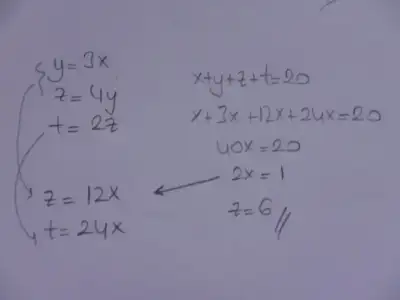 y = 3x
z = 4y
t = 2z
z = 12x
t = 24x
x+y+z+t=20
x+3x+12x+24x=20
40x=20
2x=1
z=6